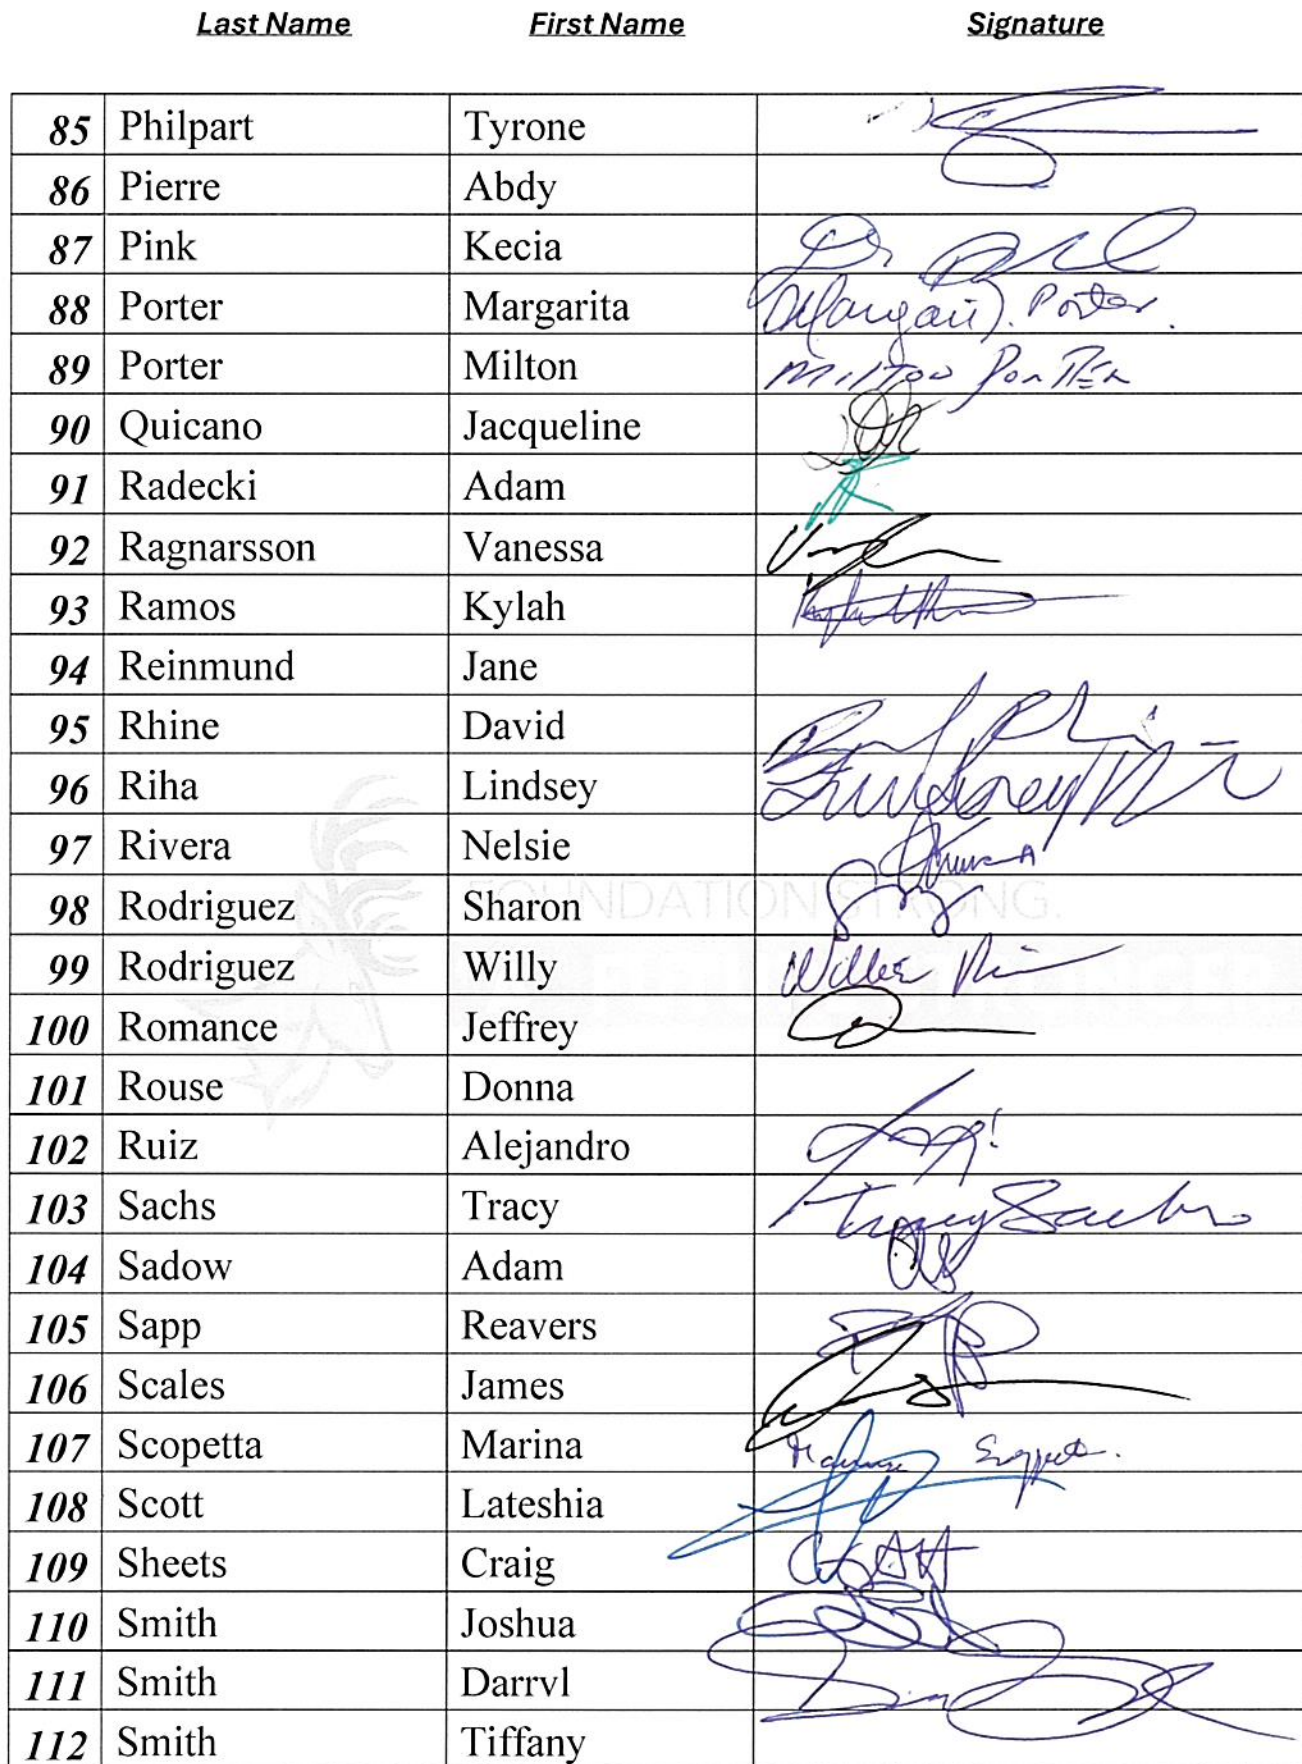 Last Name First Name Signature
85 Philpart Tyrone
86 Pierre Abdy
87 Pink Kecia Dr
88 Porter Margarita Porter.
89 Porter Milton Milton Porter
90 Quicano Jacqueline
91 Radecki Adam
92 Ragnarsson Vanessa
93 Ramos Kylah
94 Reinmund Jane
95 Rhine David
96 Riha Lindsey Lindsey
97 Rivera Nelsie
FOUNDATION STRONG.
98 Rodriguez Sharon
99 Rodriguez Willy
100 Romance Jeffrey
101 Rouse Donna
102 Ruiz Alejandro
103 Sachs Tracy Tracy Sachs
104 Sadow Adam
105 Sapp Reavers
106 Scales James
107 Scopetta Marina
108 Scott Lateshia
109 Sheets Craig
110 Smith Joshua
111 Smith Darrvl
112 Smith Tiffany